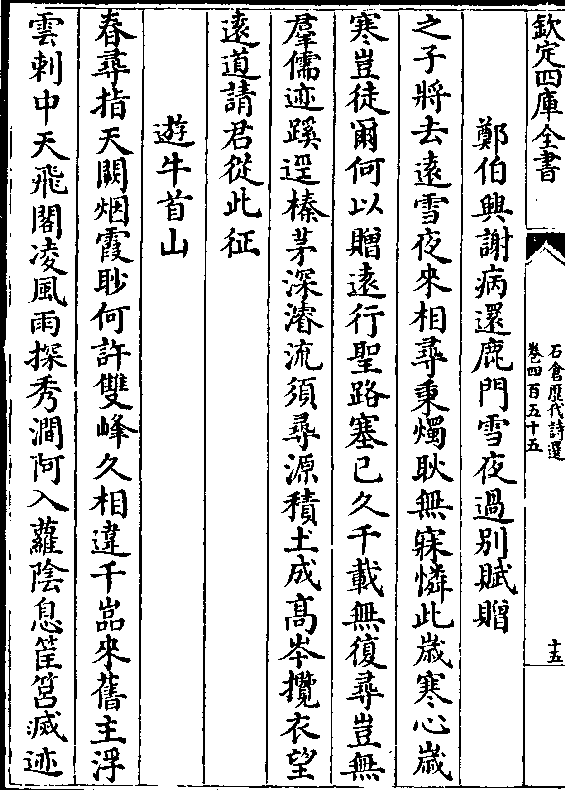 欽定四庫全書
石倉歷代詩選
卷四百五十五
十五
鄭伯興謝病還鹿門雪夜過别賦贈
之子將去遠雪夜來相尋秉燭耿無寐憐此歲寒心歲
寒豈徒爾何以贈遠行聖路塞已久千載無復尋豈無
羣儒迹蹊逕榛茅深濬流須尋源積土成髙岑攬衣望
遠道請君從此征
遊牛首山
春尋指天闕烟霞眇何許雙峰久相違千嵓來舊主浮
雲刺中天飛閣凌風雨探秀澗阿入蘿陰息筐筥滅迹